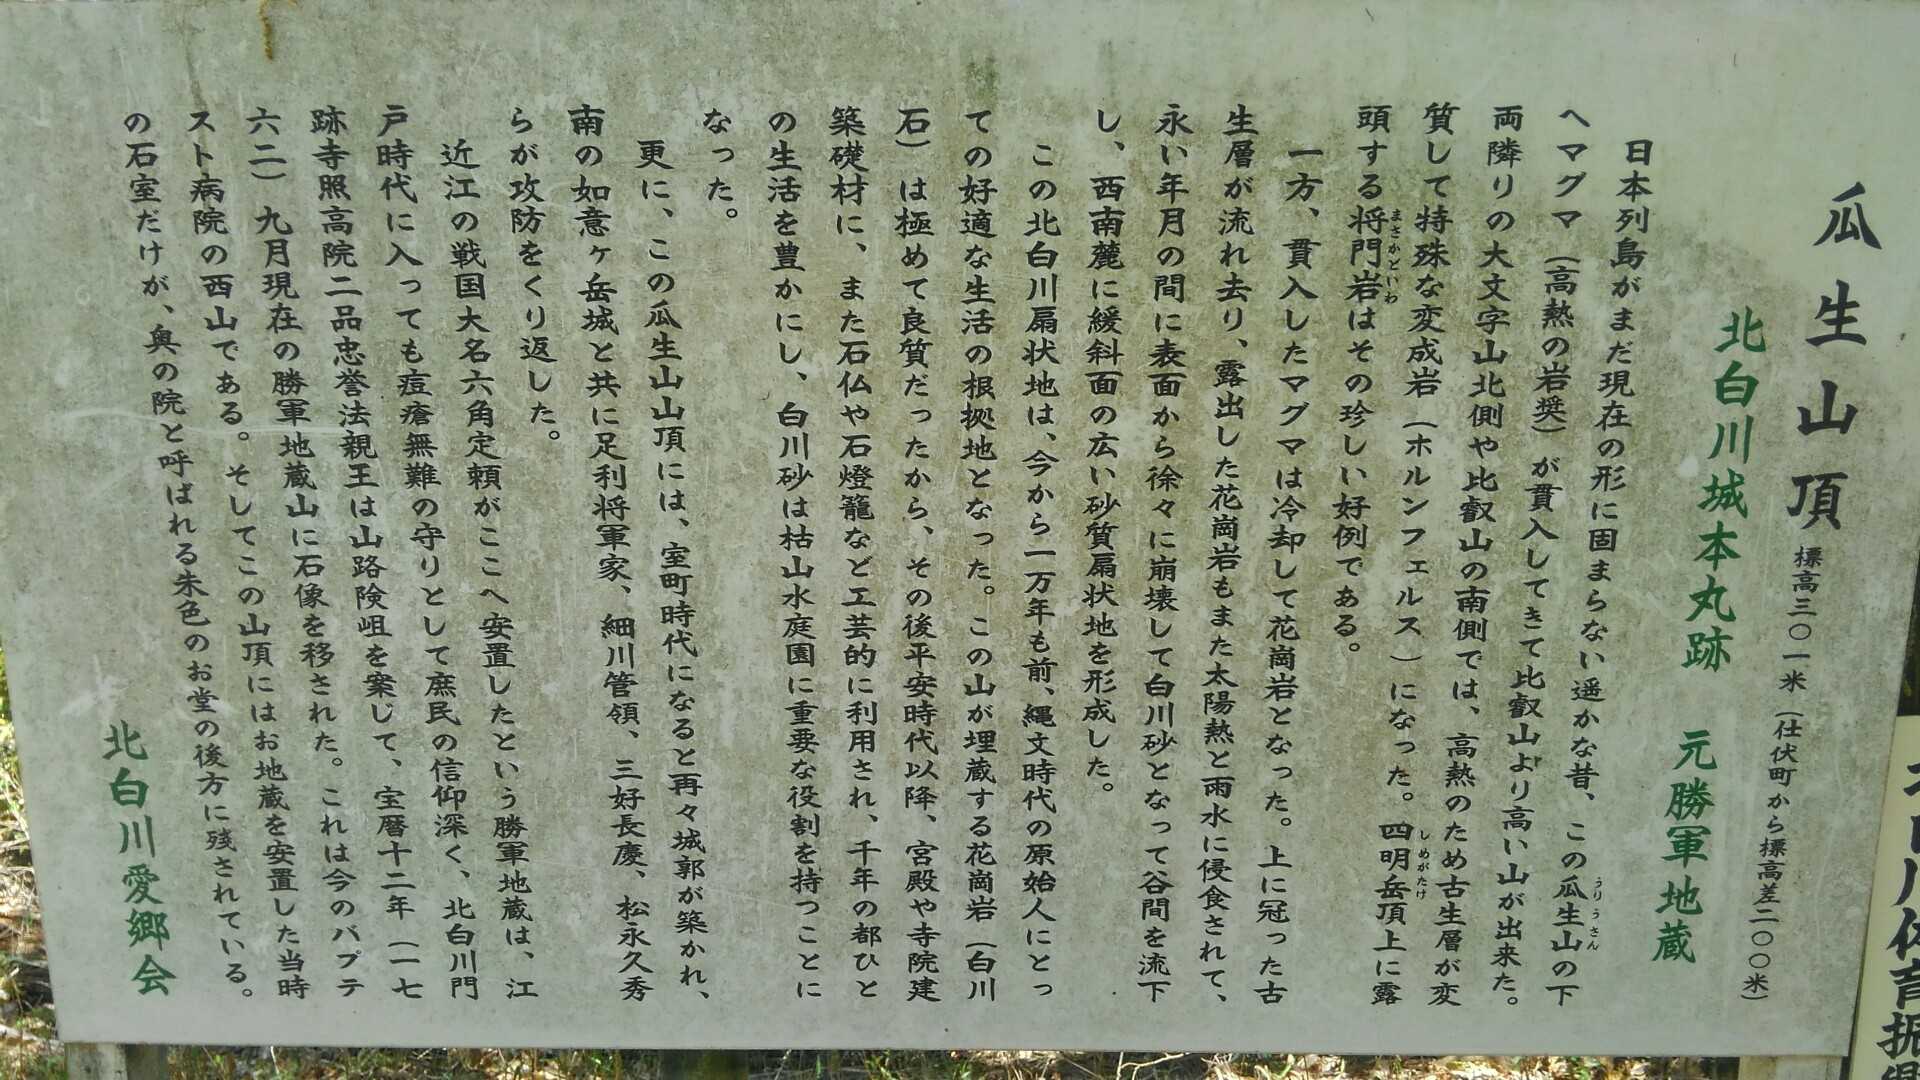 瓜生山頂 標高三〇一米（仕伏町から標高差二〇〇米）
北白川城本丸跡 元勝軍地蔵
日本列島がまだ現在の形に固まらない遥かな昔、この瓜生山の下
うりうさん
へマグマ（高熱の岩奬）が貫入してきて比叡山より高い山が出来た。
両隣りの大文字山北側や比叡山の南側では、高熱のため古生層が変
質して特殊な変成岩（ホルンフェルス）になった。四明岳頂上に露
しめがたけ
頭する将門岩はその珍しい好例である。
まさかどいわ
一方、貫入したマグマは冷却して花崗岩となった。上に冠った古
生層が流れ去り、露出した花崗岩もまた太陽熱と雨水に侵食されて、
永い年月の間に表面から徐々に崩壊して白川砂となって谷間を流下
し、西南麓に緩斜面の広い砂質扇状地を形成した。
この北白川扇状地は、今から一万年も前、縄文時代の原始人にとっ
ての好適な生活の根拠地となった。この山が埋蔵する花崗岩（白川
石）は極めて良質だったから、その後平安時代以降、宮殿や寺院建
築礎材に、また石仏や石燈籠など工芸的に利用され、千年の都ひと
の生活を豊かにし、白川砂は枯山水庭園に重要な役割を持つことに
なった。
更に、この瓜生山山頂には、室町時代になると再々城郭が築かれ、
南の如意ヶ岳城と共に足利将軍家、細川管領、三好長慶、松永久秀
らが攻防をくり返した。
近江の戦国大名六角定頼がここへ安置したという勝軍地蔵は、江
戸時代に入っても痘瘡無難の守りとして庶民の信仰深く、北白川門
跡寺照高院二品忠誉法親王は山路険岨を案じて、宝暦十二年（一七
六二）九月現在の勝軍地蔵山に石像を移された。これは今のバプテ
スト病院の西山である。そしてこの山頂にはお地蔵を安置した当時
の石室だけが、奥の院と呼ばれる朱色のお堂の後方に残されている。
北白川愛郷会